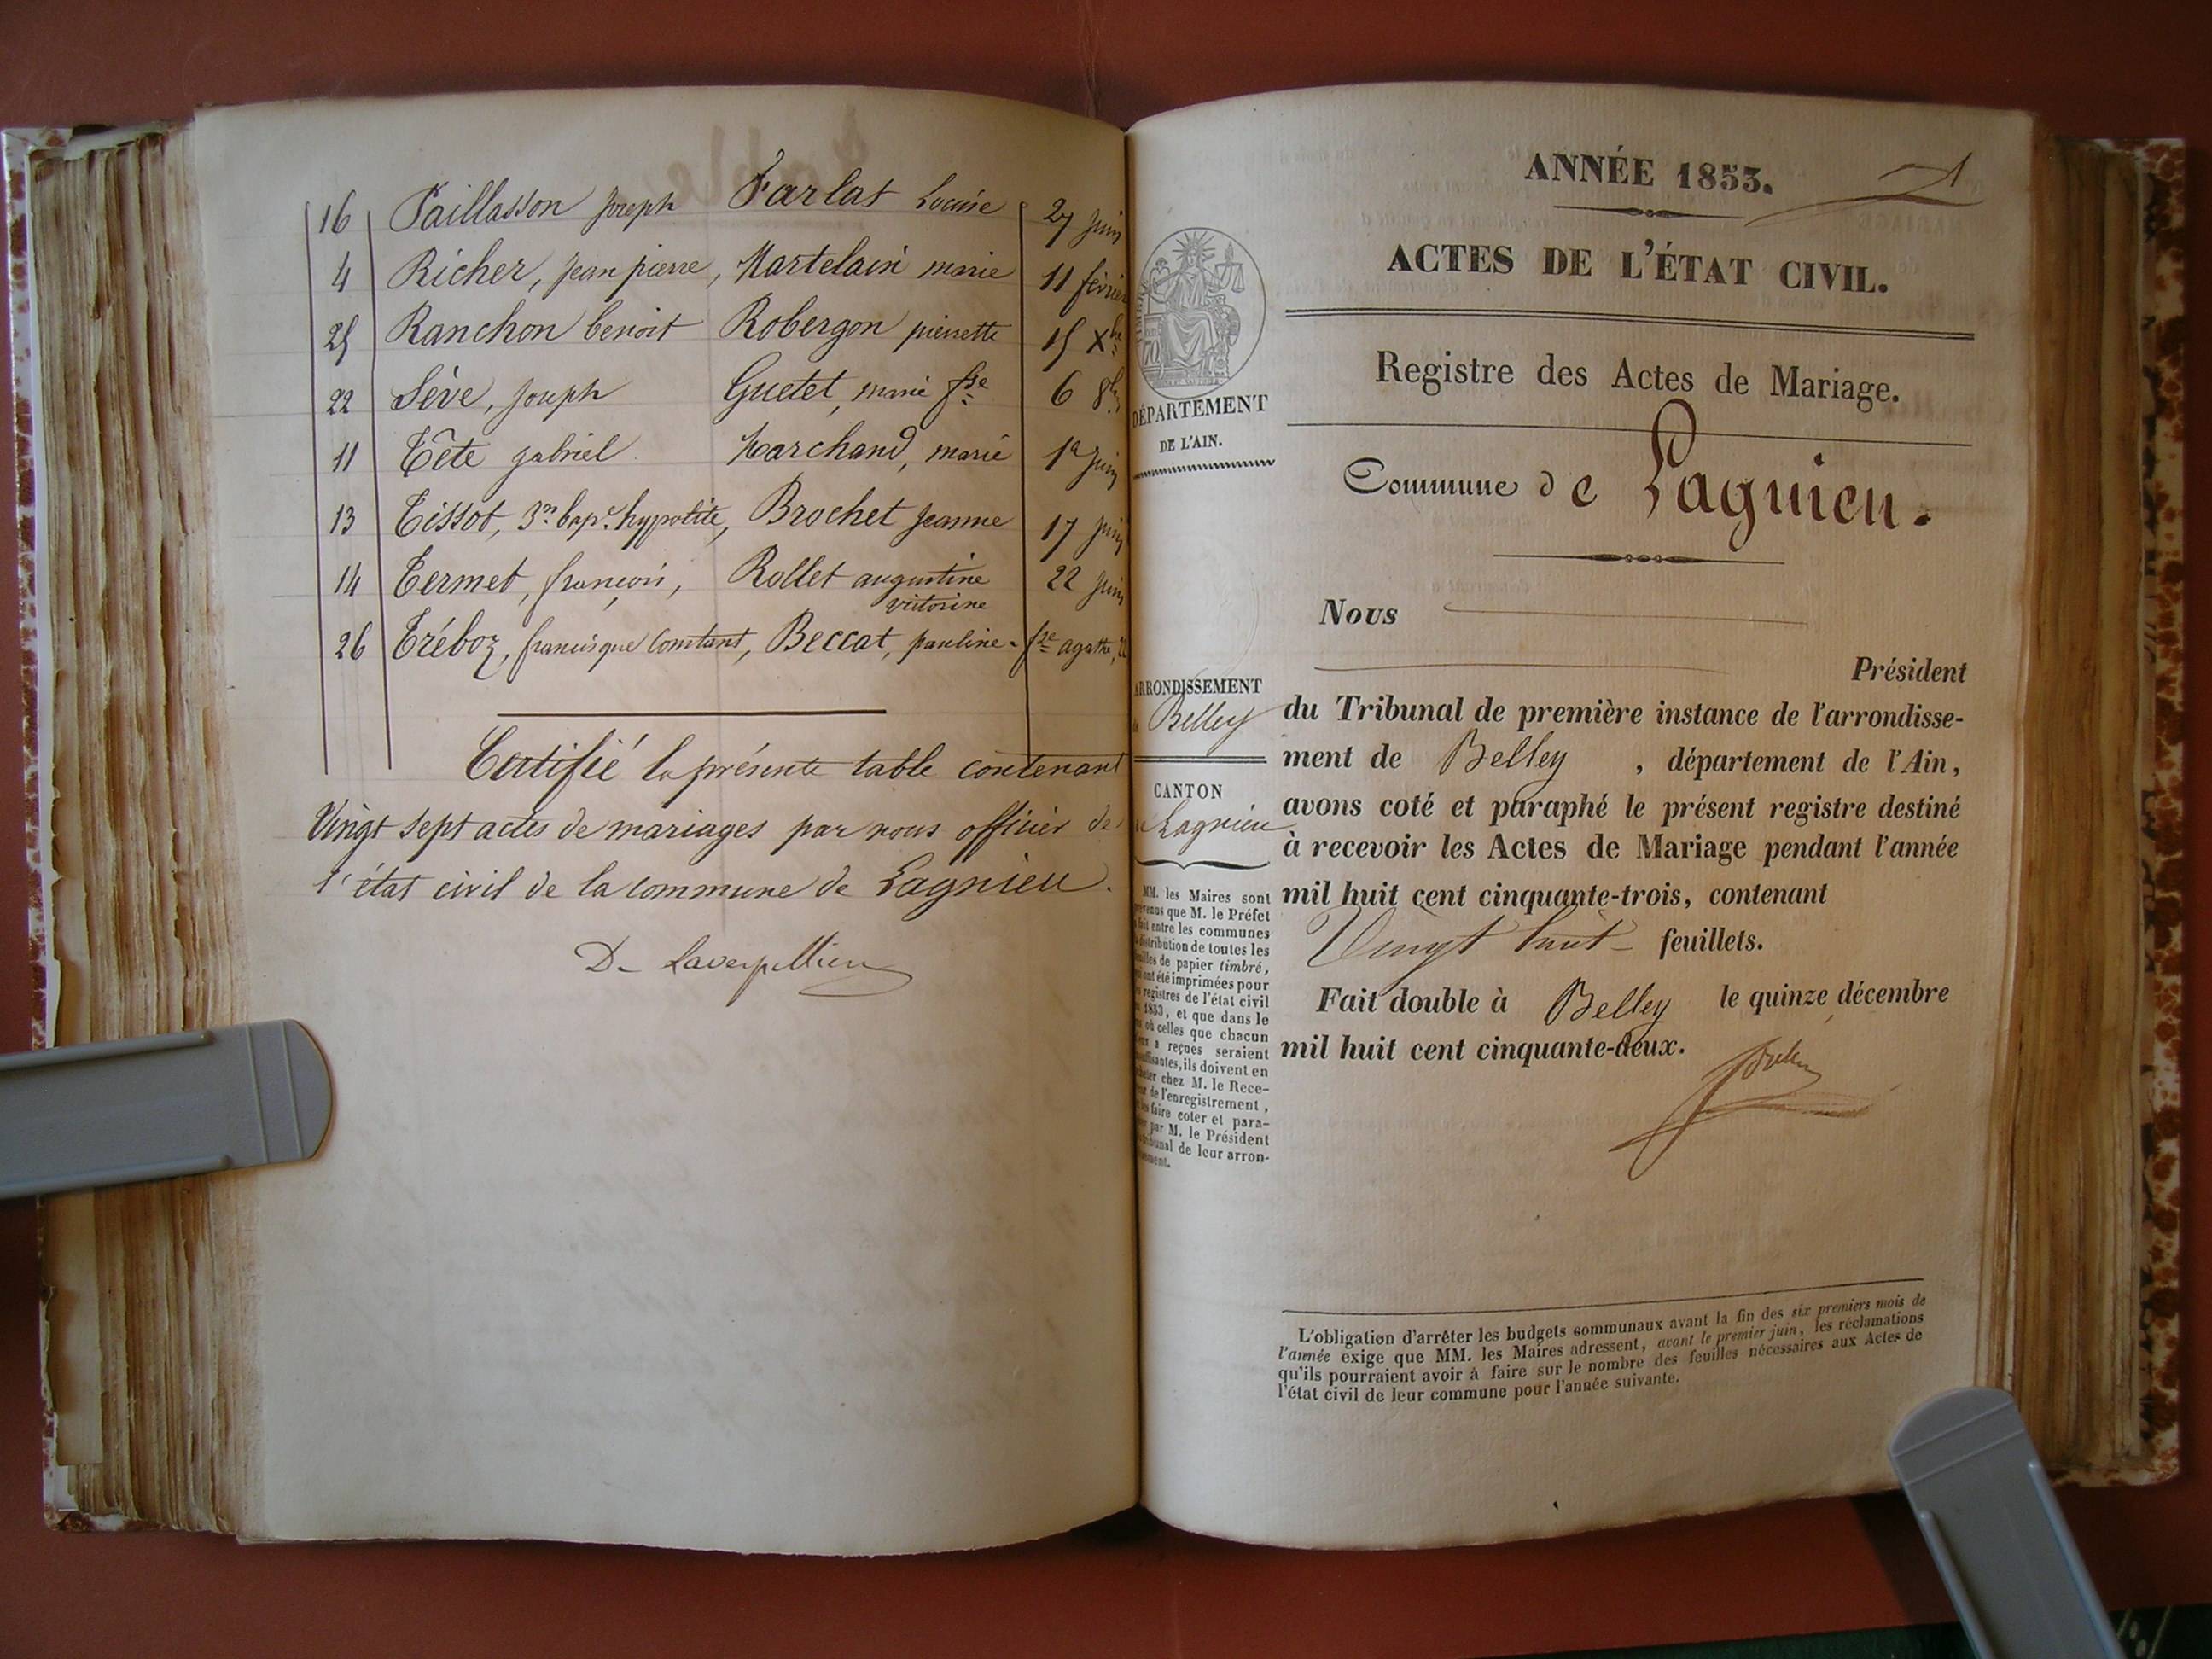 16 Paillasson Joseph Farlat Louise 27 juin
4 Richer, jean pierre, Martelain marie 11 février
25 Ranchon benoit Robergon pierrette 15 Xbre
22 Sève, joseph Guetet, marie fse 6 8bre
11 Tête gabriel Marchand, marie 1er juin
13 Tissot, Jn bapt. hypolite, Brochet jeanne 17 juin
14 Termet, françois, Rollet augustine victorine 22 juin
26 Tréboz, francisque constant, Beccat, pauline fse agathe, 22
Certifié la présente table contenant
Vingt sept actes de mariages par nous officier de
l'état civil de la commune de Lagnieu.
ANNÉE 1853.
1
ACTES DE L'ÉTAT CIVIL.
Registre des Actes de Mariage.
DÉPARTEMENT
DE L'AIN.
Commune de Lagnieu.
Nous
Président
ARRONDISSEMENT
Belley
CANTON
Lagnieu
du Tribunal de première instance de l'arrondisse-
ment de Belley , département de l'Ain,
avons coté et paraphé le présent registre destiné
à recevoir les Actes de Mariage pendant l'année
mil huit cent cinquante-trois, contenant
Vingt huit feuillets.
Fait double à Belley le quinze décembre
mil huit cent cinquante-deux.
MM. les Maires sont
prévenus que M. le Préfet
a fait entre les communes
la distribution de toutes les
feuilles de papier timbré,
qui ont été imprimées pour
les registres de l'état civil
en 1853, et que dans le
cas où celles que chacun
d'eux a reçues seraient
insuffisantes, ils doivent en
acheter chez M. le Rece-
veur de l'enregistrement,
et les faire coter et para-
pher par M. le Président
du tribunal de leur arron-
dissement.
L'obligation d'arrêter les budgets communaux avant la fin des six premiers mois de
l'année exige que MM. les Maires adressent, avant le premier juin, les réclamations
qu'ils pourraient avoir à faire sur le nombre des feuilles nécessaires aux Actes de
l'état civil de leur commune pour l'année suivante.